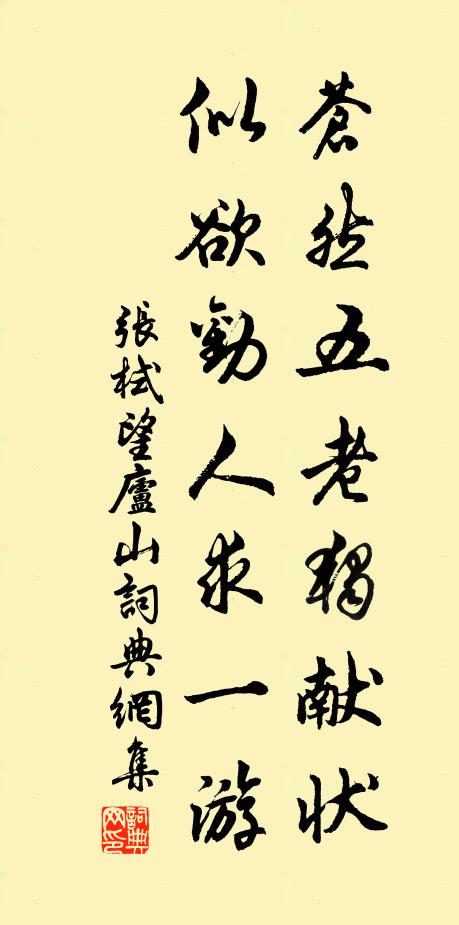 蒼然五老獨献状
似欲勸人求一游
張栻望廬山詞典網集
詞典網印